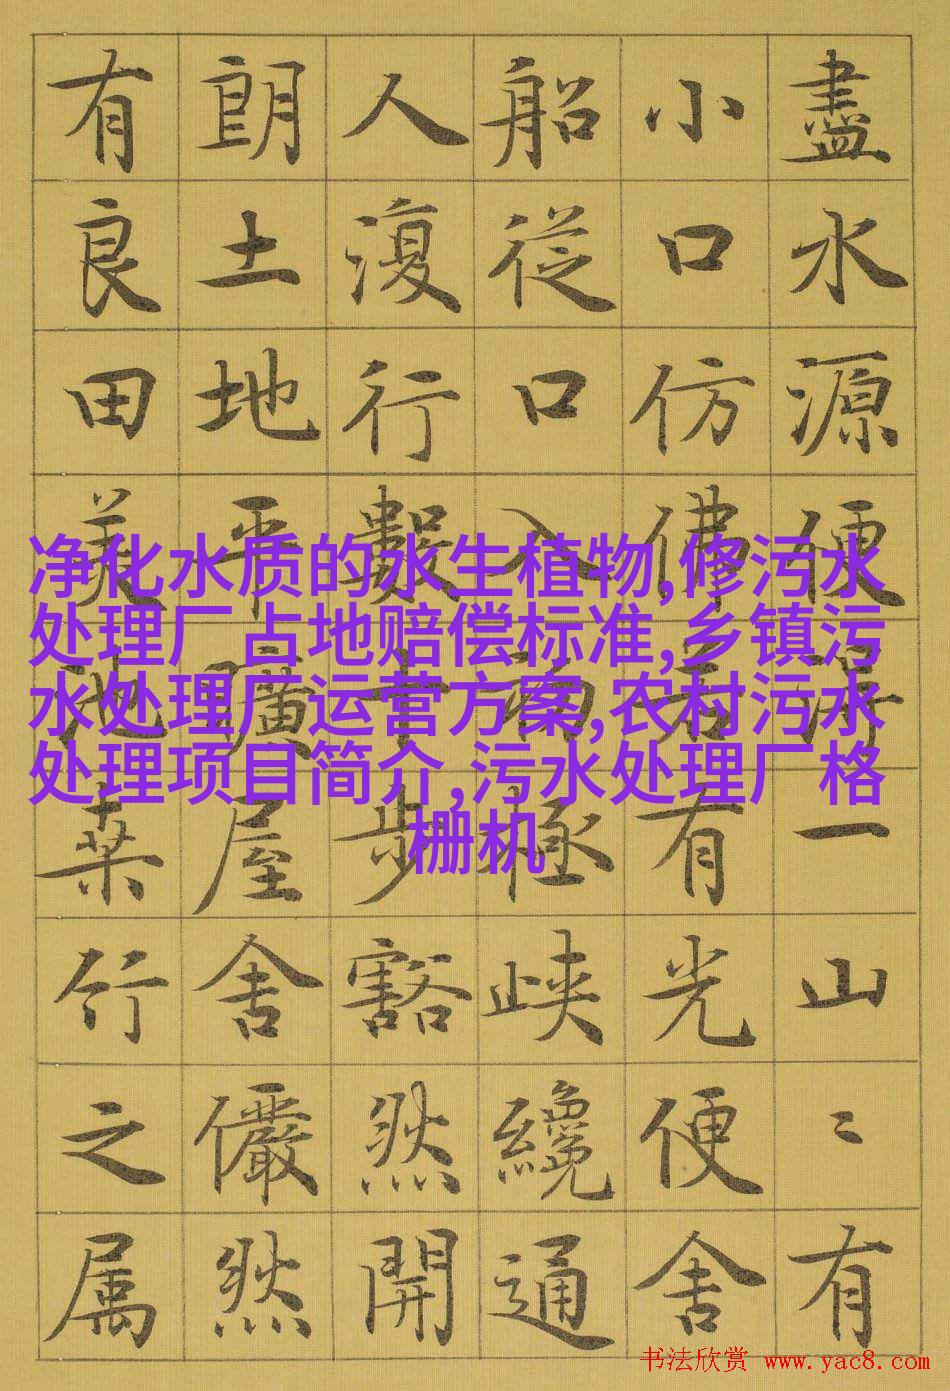 盡水源便得一山〻有
小口仿佛若有光便舍
船從口入極峽纔通
人復行數十步豁然開
朗土地平曠屋舍儼然
有良田美池桑竹之属
净化水质的水生植物,修污水
处理厂占地赔偿标准,乡镇污
水处理厂运营方案,农村污水
处理项目简介,污水处理厂格
栅机
书法欣赏 www.yac8.com